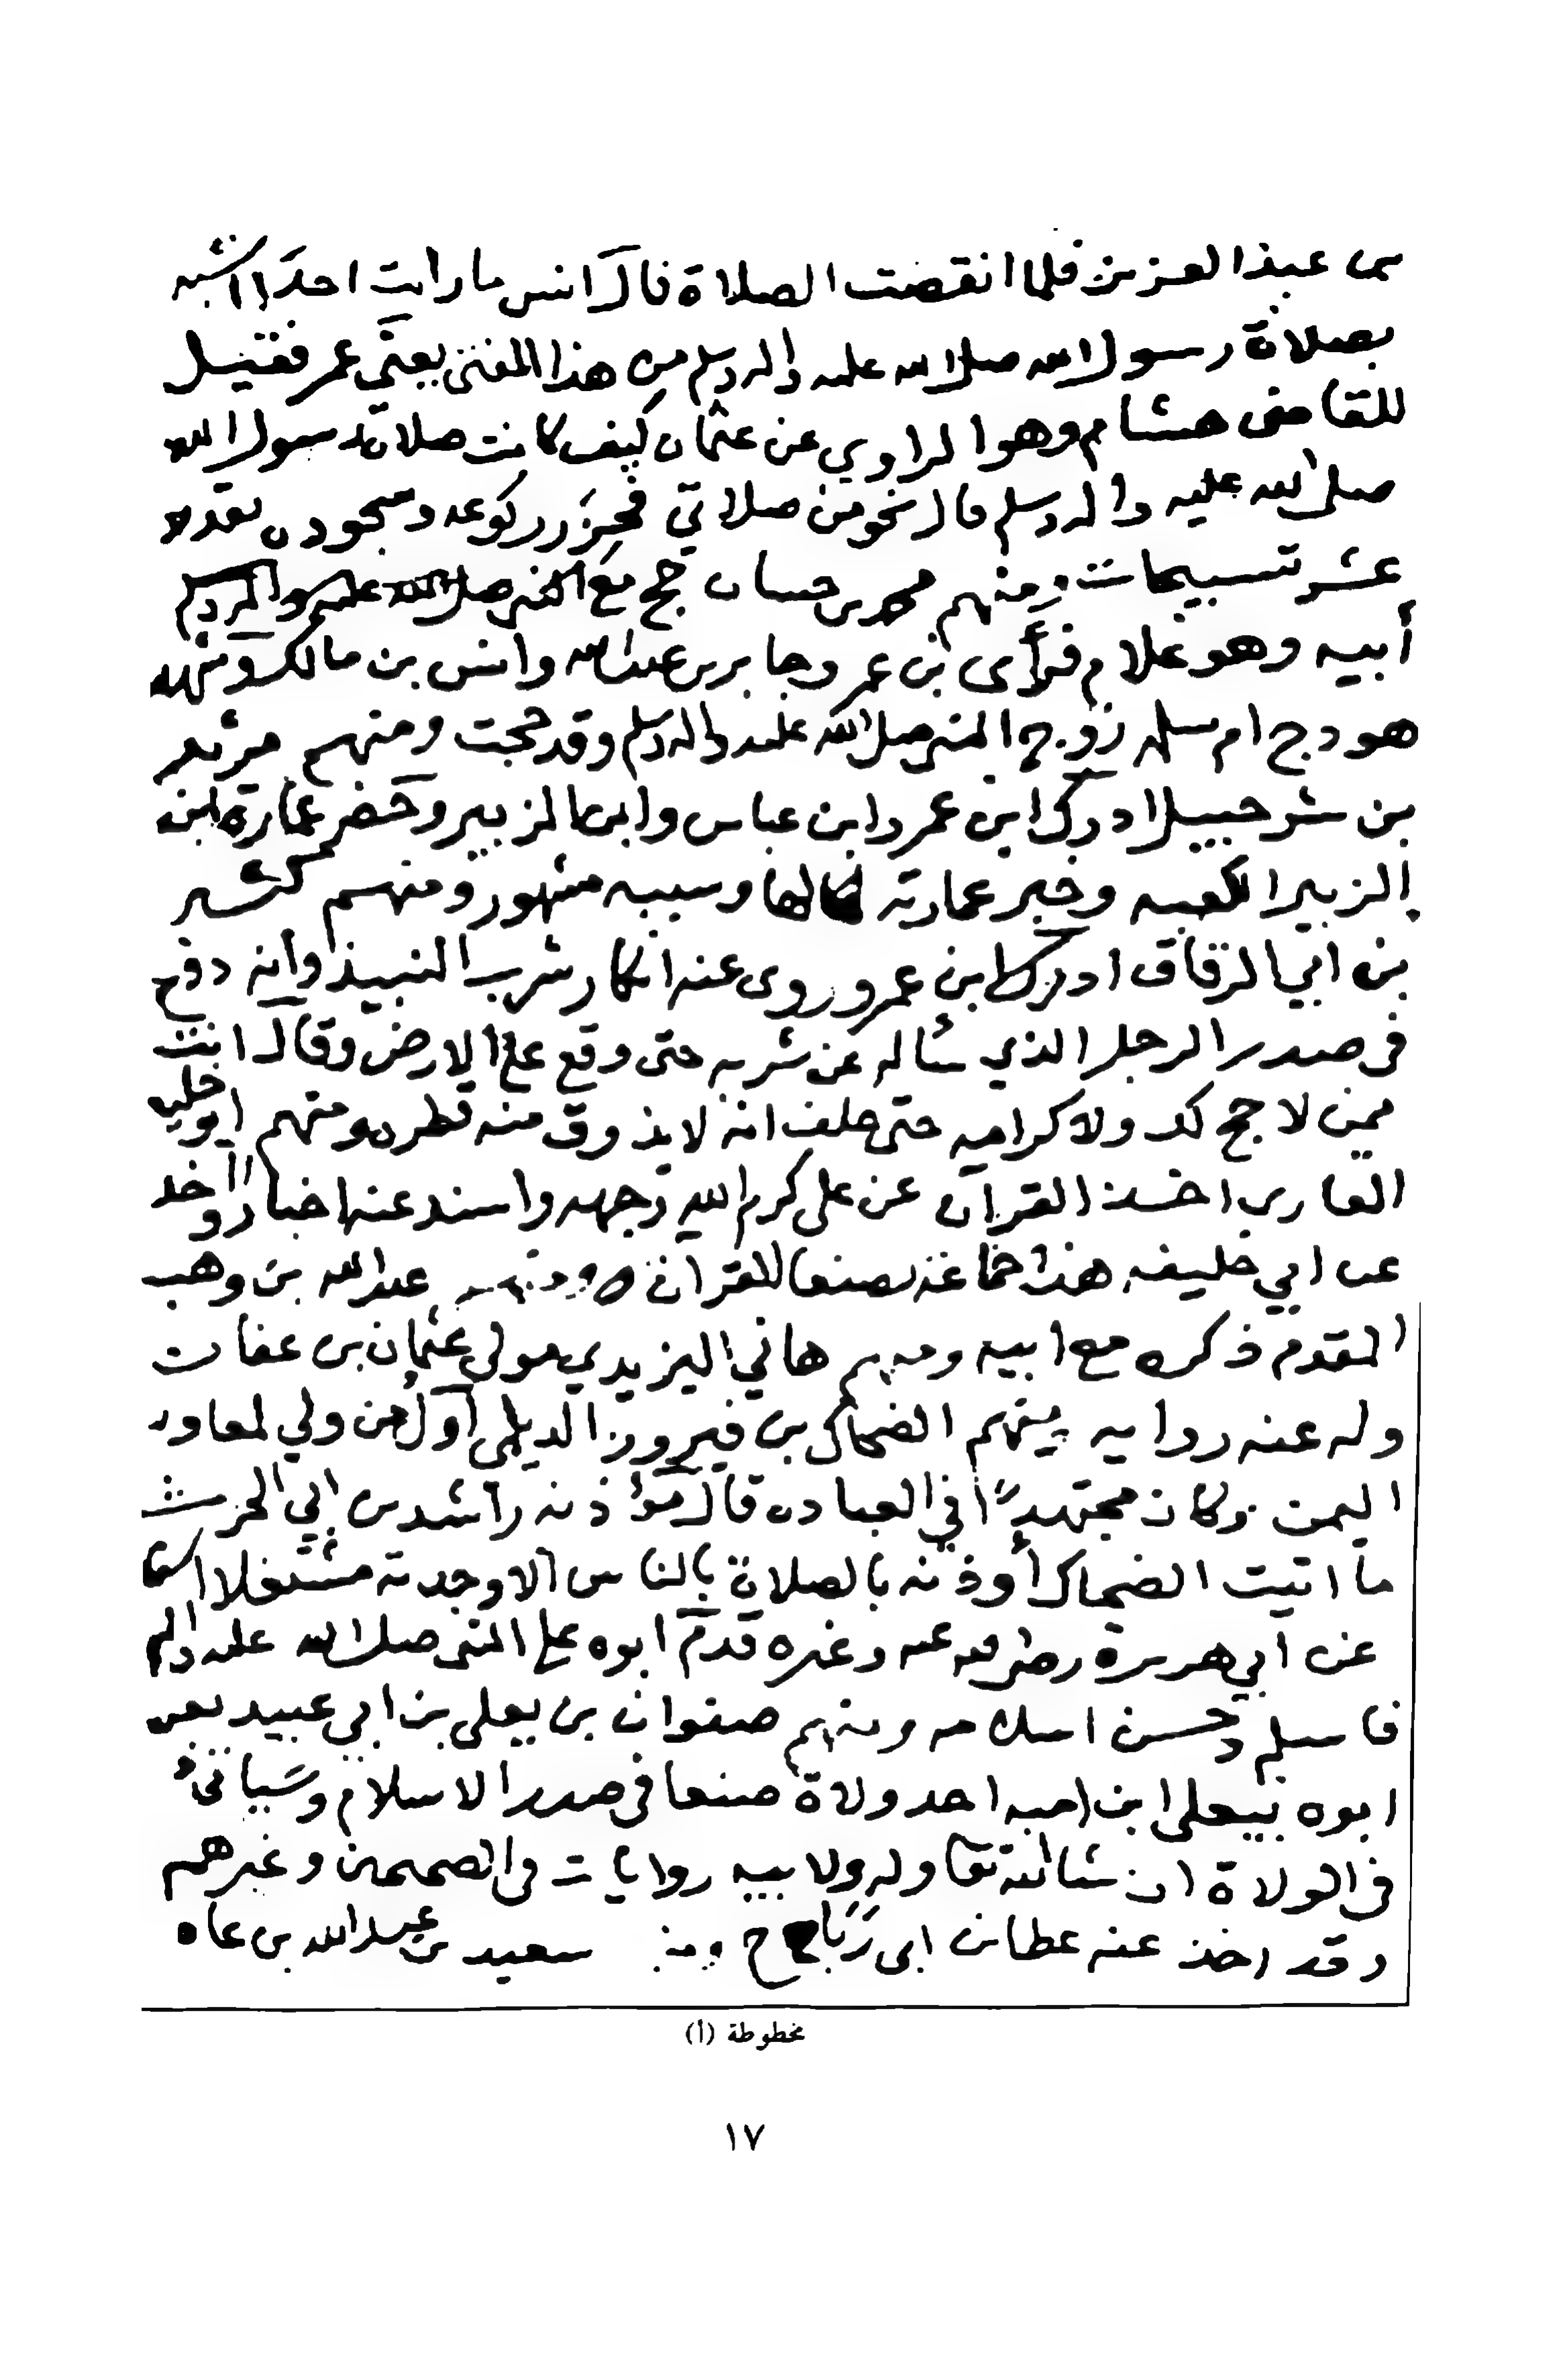 بن عبد العزيز فلما انقضت الصلاة قال انس ما رايت احدًا اشبه
بصلاة رسول الله صلى الله عليه واله وسلم من هذا الفتى يعني عمر فقيل
للقاضي هشام وهو الراوي عن عثمان كيف كانت صلاة رسول الله
صلى الله عليه واله وسلم قال نحو من صلاتي فحزر ركوعه وسجوده بقدر
عشر تسبيحات ومنهم محمد بن حسان حج مع
أبيه وهو غلام فرأى ابن عمر وجابر بن عبدالله وانس بن مالك وشهد
هودج ام سلمه زوج النبي صلى الله عليه واله وسلم وقد حجت ومنهم مرثد
بن شرحبيل ادرك ابن عمر وابن عباس وابن الزبير وحضر عمارة ابن
الزبير الكعبه وخبر عمارته لها وسببه مشهور ومنهم كثير
بن ابي الزقاق ادرك ابن عمر وروى عنه انكار شرب النبيذ وانه دفع
في صدر الرجل الذي سأله عن شربه حتى وقع على الارض وقال انت
ممن لا حج لك ولا كرامه حتى حلف انه لا يذوق منه قطره ومنهم ابو خليفه
القاري اخذ القرآن عن علي كرم الله وجهه واسند عنه اخبارا واخذ
عن ابي خليفه هذا جماعة بصنعا القرآن ومنهم عبدالله بن وهب
المقدم ذكره مع ابيه ومنهم هاني اليزيدي مولى عثمان بن عفان
وله عنه روايه ومنهم الضحاك بن فيروز الديلمي اول من ولي لمعاويه
اليمن وكان مجتهدًا في العباده قال مؤذنه راشد بن ابي الحريش
ما اتيت الضحاك أوذنه بالصلاة بالناس الا وجدته مشتغلا
عن ابي هريرة رضي الله عنه وغيره قدم ابوه على النبي صلى الله عليه واله وسلم
فاسلم وحسن اسلامه ومنهم صفوان بن يعلى بن ابي عبيد يعني
ابوه بيعلى ابن اميه احد ولاة صنعا في صدر الاسلام وسياتي
في الولاة ان شا الله تعا وله ولابيه روايات في الصحيحين وغيرهم
وقد اخذ عنه عطا بن ابي رَبَاح ومنهم سعيد بن عبدالله بن عاه
مخطوطة (أ)
١٧